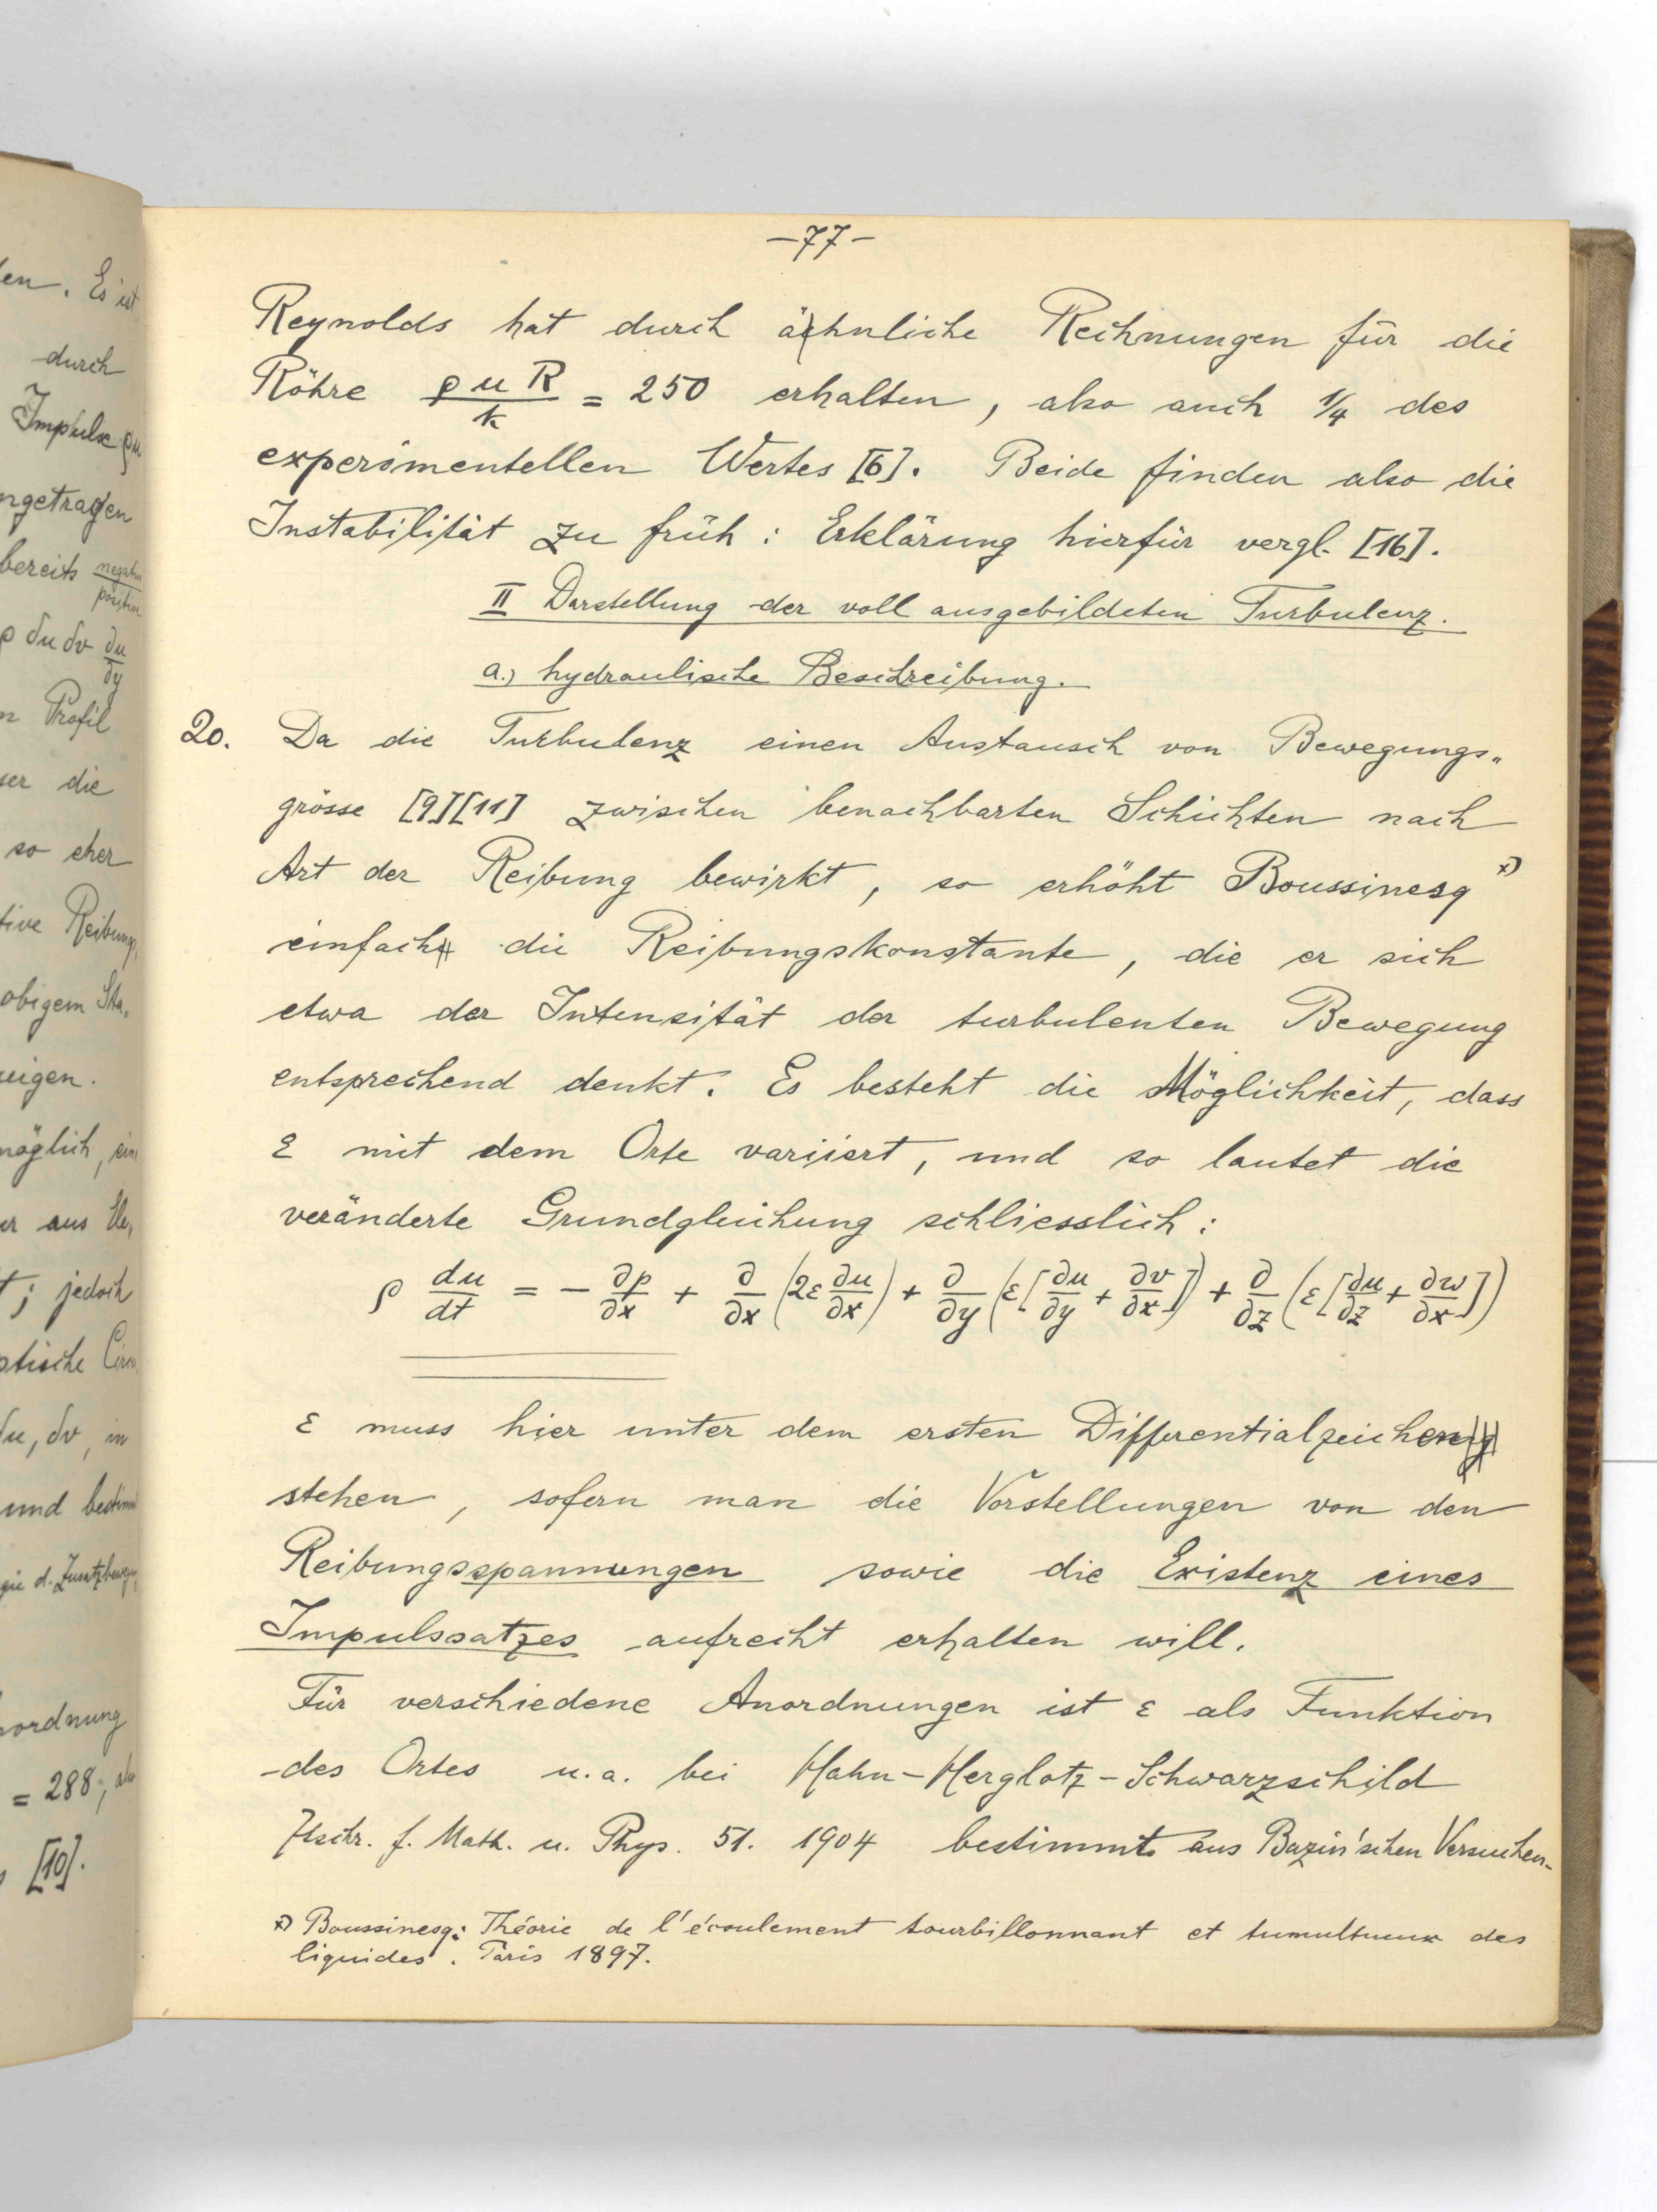 en. Es ist
durch
Impulse ρu
ngetragen
bereits negativ
positiv
ρ δu δv ∂u/∂y
n Profil
ser die
so eher
tive Reibungs„
obigem Sta„
eigen.
möglich, ein
er aus He„
t; jedoch
ptische
δu, δv, in
und bestimmt
gie d. Zusatzbewegung
nordnung
= 288, also
[10].
–77–
Reynolds hat durch ähnliche Rechnungen für die
Röhre ρ u R / k = 250 erhalten, also auch 1/4 des
experimentellen Wertes [6]. Beide finden also die
Instabilität zu früh: Erklärung hierfür vergl. [16].
II Darstellung der voll ausgebildeten Turbulenz.
a.) hydraulische Beschreibung.
20. Da die Turbulenz einen Austausch von Bewegungs„
grösse [9][11] zwischen benachbarten Schichten nach
Art der Reibung bewirkt, so erhöht Boussinesq x)
einfach die Reibungskonstante, die er sich
etwa der Intensität der turbulenten Bewegung
entsprechend denkt. Es besteht die Möglichkeit, dass
ε mit dem Orte variiert, und so lautet die
veränderte Grundgleichung schliesslich:
ρ du/dt = – ∂p/∂x + ∂/∂x (2ε ∂u/∂x) + ∂/∂y (ε[∂u/∂y + ∂v/∂x]) + ∂/∂z (ε[∂u/∂z + ∂w/∂x])
ε muss hier unter dem ersten Differentialzeichen
stehen, sofern man die Vorstellungen von den
Reibungsspannungen sowie die Existenz eines
Impulssatzes aufrecht erhalten will.
Für verschiedene Anordnungen ist ε als Funktion
des Ortes u.a. bei Hahn–Herglotz–Schwarzschild
Ztschr. f. Math. u. Phys. 51. 1904 bestimmt aus Bazin'schen Versuchen.
x) Boussinesq: Théorie de l'écoulement tourbillonnant et tumultueux des
liquides. Paris 1897.